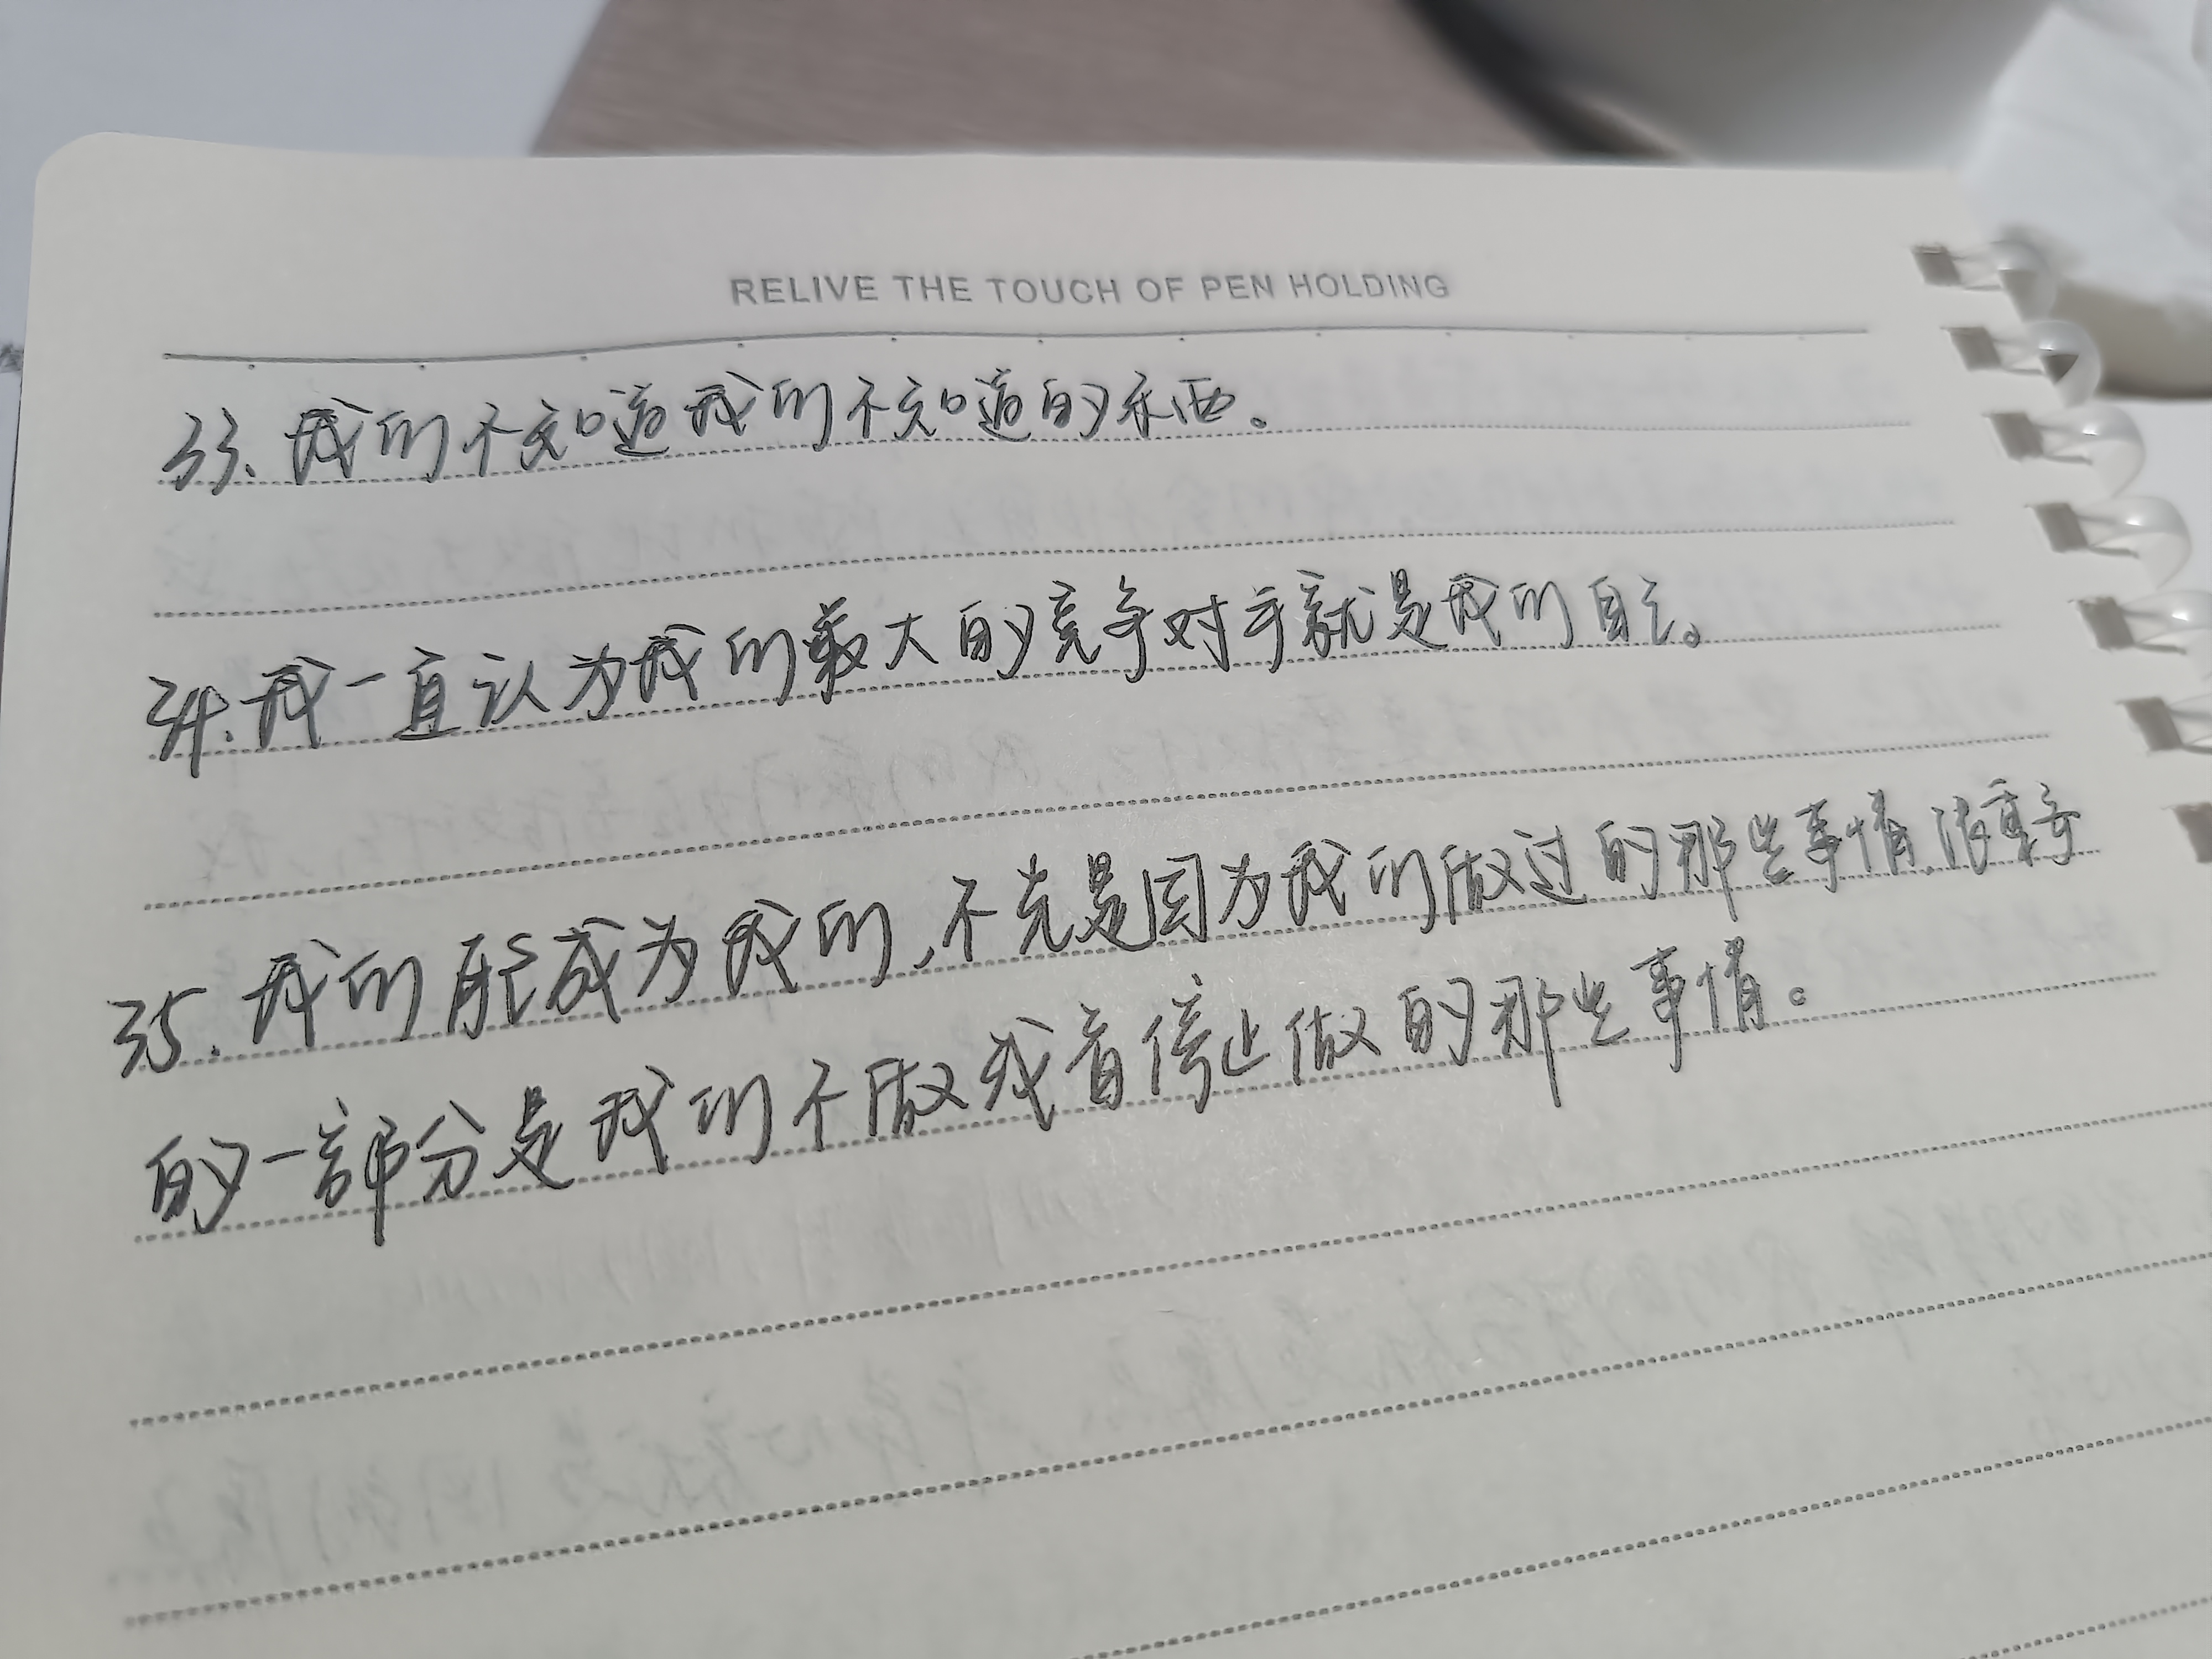 RELIVE THE TOUCH OF PEN HOLDING
33、我们不知道我们不知道的东西。
34、我一直认为我们最大的竞争对手就是我们自己。
35、我们能成为我们,不光是因为我们做过的那些事情,很重要
的一部分是我们不做或者停止做的那些事情。